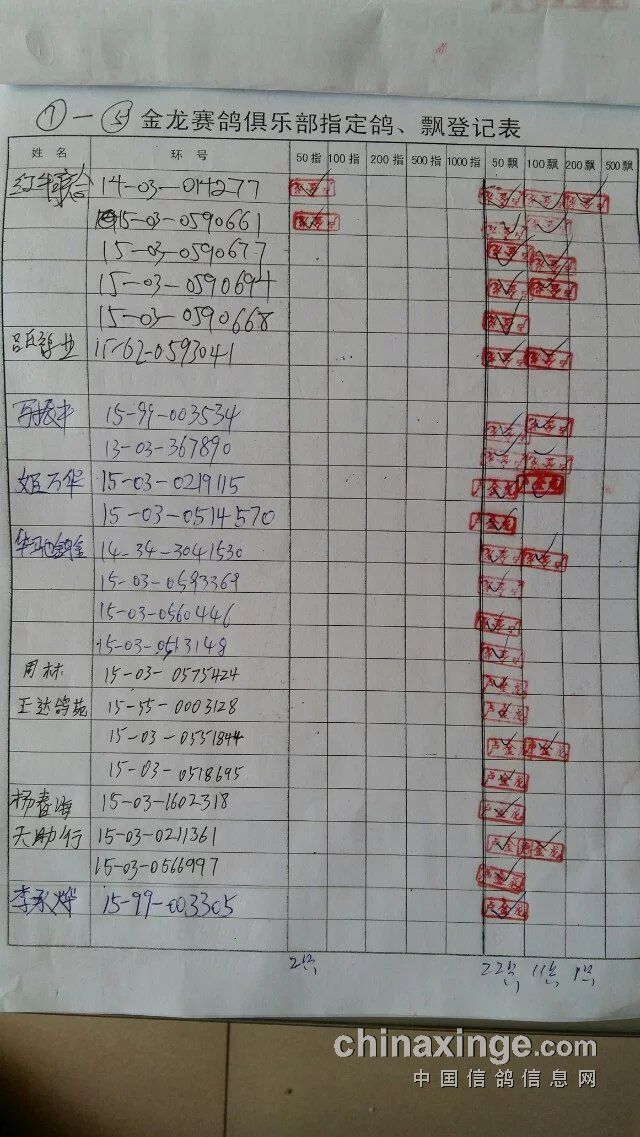 ⑦一⑤ 金龙赛鸽俱乐部指定鸽、飘登记表
姓名 环号 50指 100指 200指 500指 1000指 50飘 100飘 200飘 500飘
红牛联合 14-03-014277
15-03-0590661
15-03-0590677
15-03-0590694
15-03-0590668
吕氏 业 15-62-0593041
15-99-003534
13-03-367890
姬万华 15-03-0219115
15-03-0514570
14-34-3041530
15-03-0593369
15-03-0560446
15-03-0513148
周林 15-03-0575424
正达鸽苑 15-55-0003128
15-03-0551844
15-03-0518695
杨春海 15-03-1602318
天助行 15-03-0211361
15-03-0566997
李承烨 15-99-003305
2只 22只 11只 1只
chinaxinge.com
中国信鸽信息网